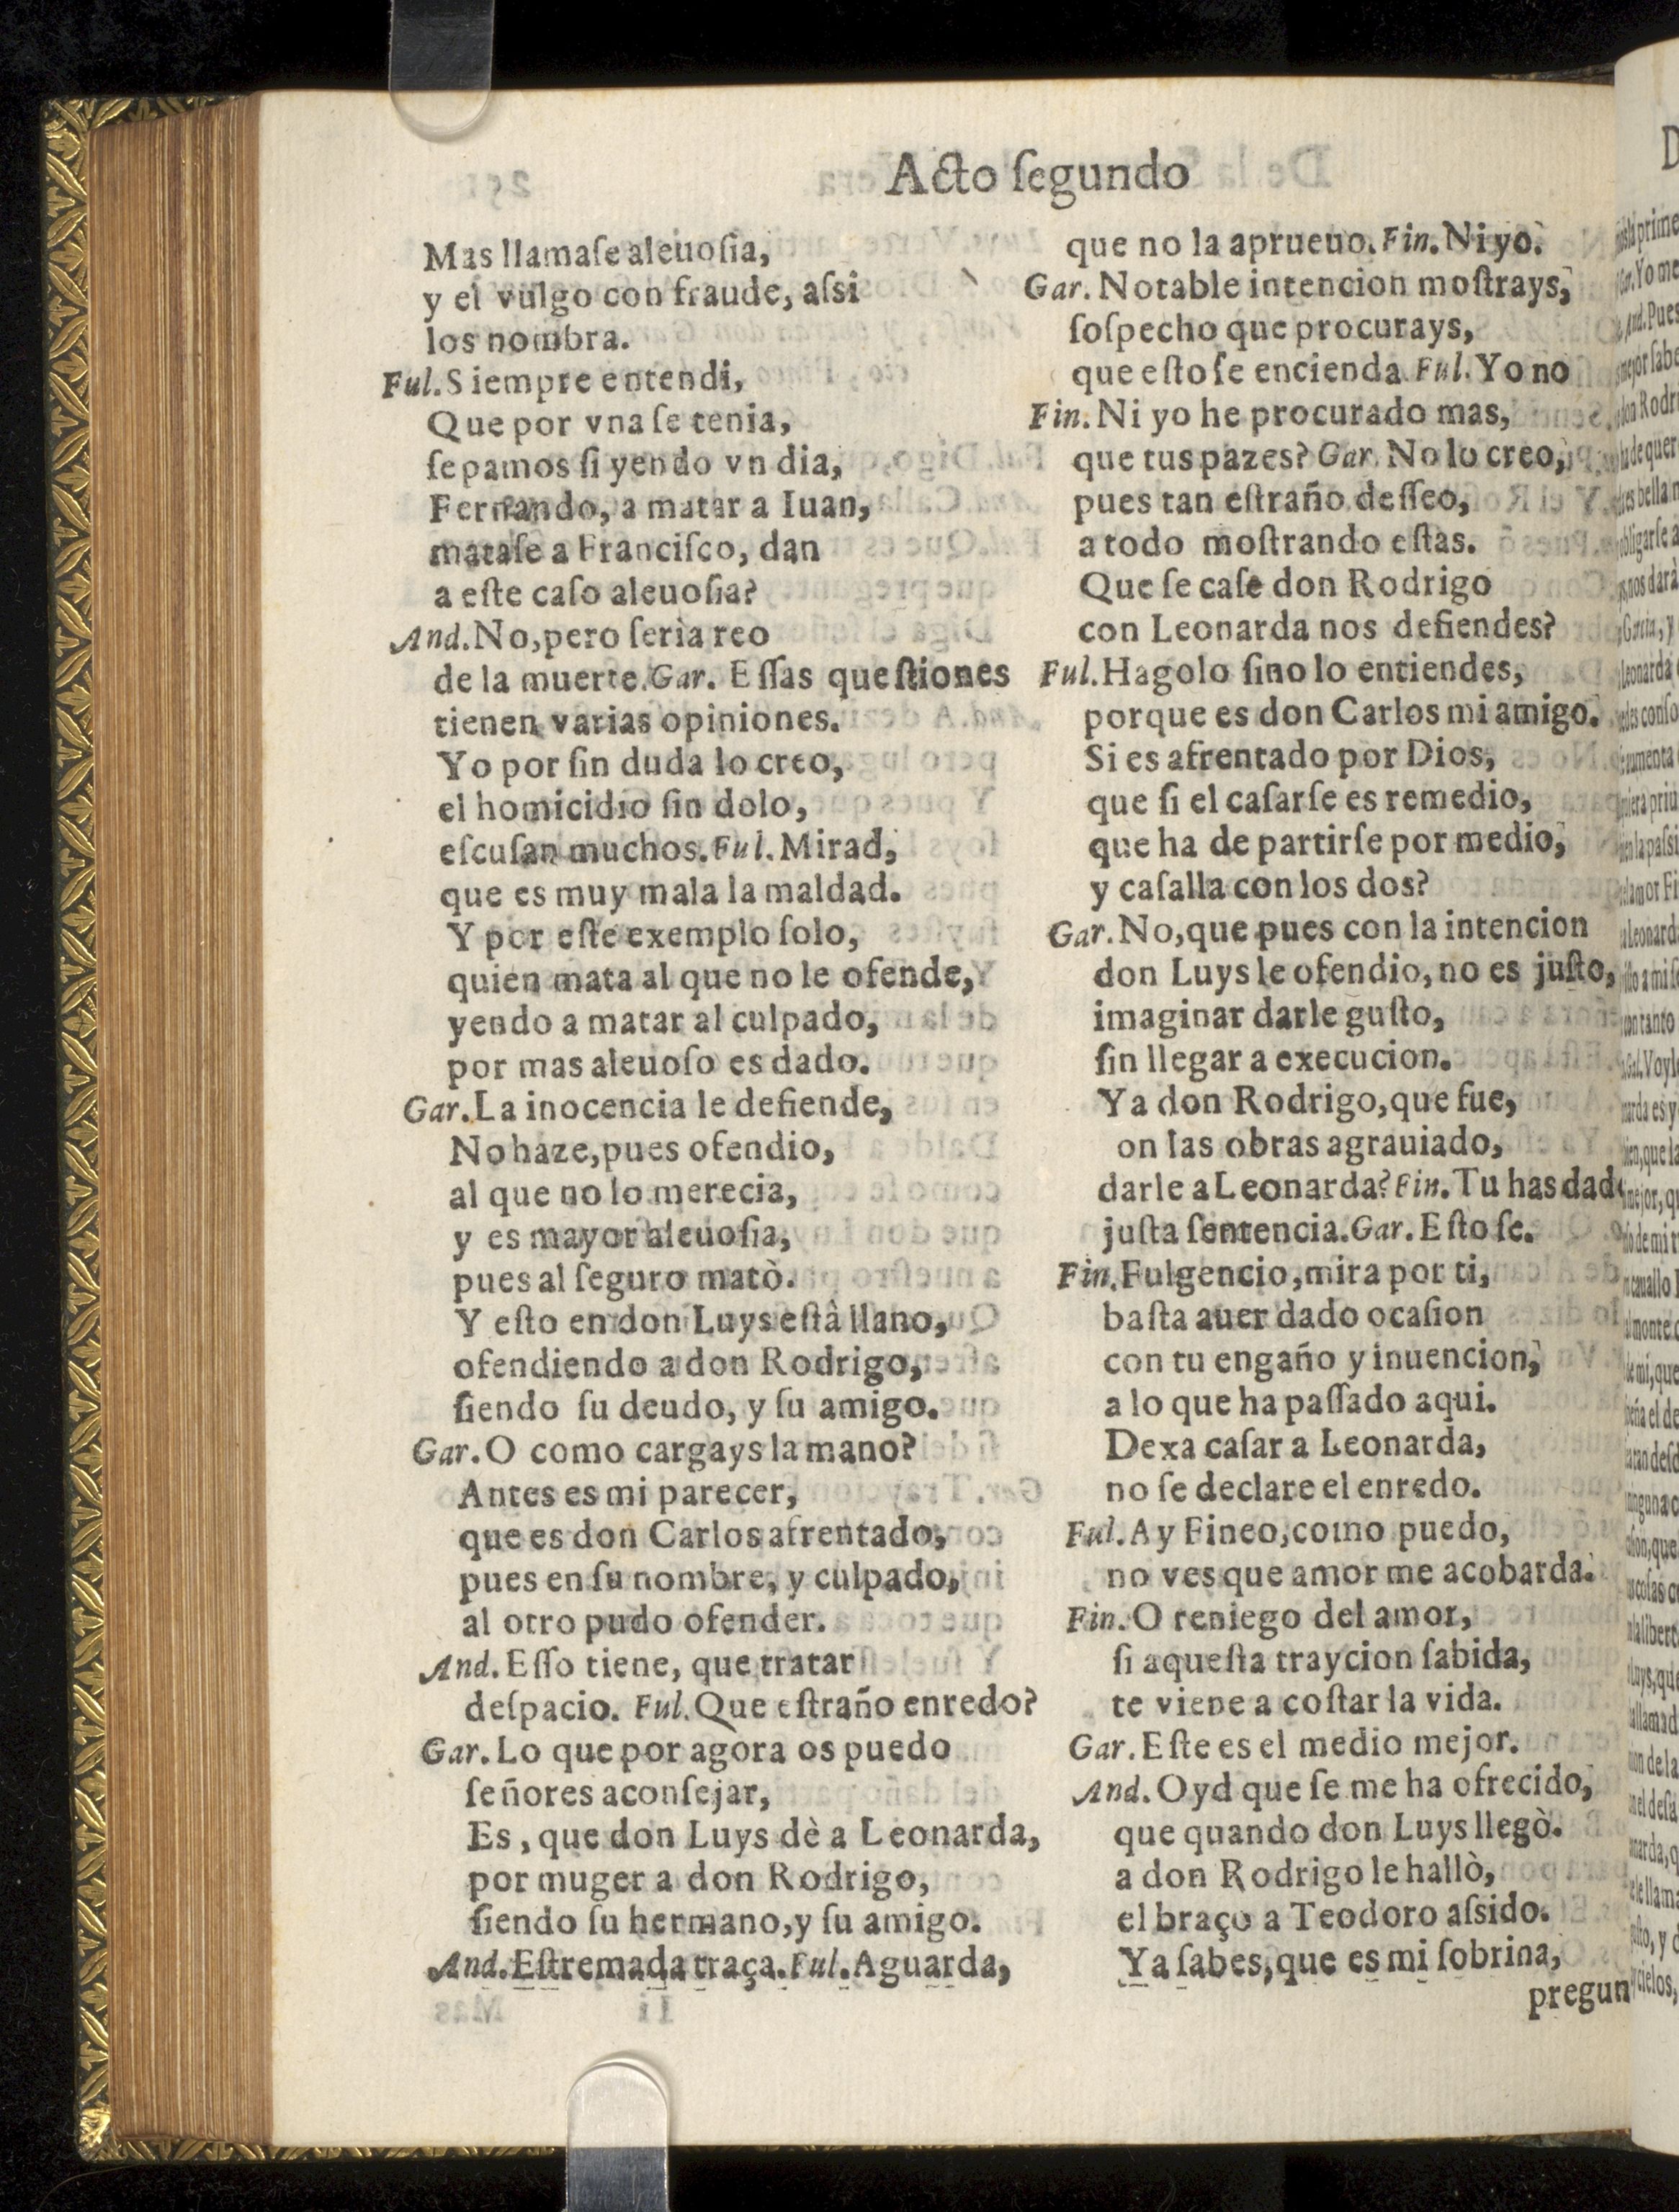 Acto ſegundo
Mas llamaſe aleuoſia,
y el vulgo con fraude, aſsi
los nombra.
Ful. Siempre entendi,
Que por vna ſe tenia,
ſepamos ſi yendo vn dia,
Fernando, a matar a Iuan,
mataſe a Franciſco, dan
a eſte caſo aleuoſia?
And. No, pero ſerìa reo
de la muerte. Gar. Eſſas queſtiones
tienen varias opiniones.
Yo por ſin duda lo creo,
el homicidio ſin dolo,
eſcuſan muchos. Ful. Mirad,
que es muy mala la maldad.
Y por eſte exemplo ſolo,
quien mata al que no le ofende,
yendo a matar al culpado,
por mas aleuoſo es dado.
Gar. La inocencia le defiende,
No haze, pues ofendio,
al que no lo merecia,
y es mayor aleuoſia,
pues al ſeguro matò.
Y eſto en don Luys eſtà llano,
ofendiendo a don Rodrigo,
ſiendo ſu deudo, y ſu amigo.
Gar. O como cargays la mano?
Antes es mi parecer,
que es don Carlos afrentado,
pues en ſu nombre, y culpado,
al otro pudo ofender.
And. Eſſo tiene, que tratar
deſpacio. Ful. Que eſtraño enredo?
Gar. Lo que por agora os puedo
ſeñores aconſejar,
Es, que don Luys dè a Leonarda,
por muger a don Rodrigo,
ſiendo ſu hermano, y ſu amigo.
And. Eſtremada traça. Ful. Aguarda,
que no la aprueuo. Fin. Ni yo.
Gar. Notable intencion moſtrays,
ſoſpecho que procurays,
que eſto ſe encienda Ful. Yo no
Fin. Ni yo he procurado mas,
que tus pazes? Gar. No lo creo,
pues tan eſtraño deſſeo,
a todo moſtrando eſtas.
Que ſe caſe don Rodrigo
con Leonarda nos defiendes?
Ful. Hagolo ſino lo entiendes,
porque es don Carlos mi amigo.
Si es afrentado por Dios,
que ſi el caſarſe es remedio,
que ha de partirſe por medio,
y caſalla con los dos?
Gar. No, que pues con la intencion
don Luys le ofendio, no es juſto,
imaginar darle guſto,
ſin llegar a execucion.
Ya don Rodrigo, que fue,
on las obras agrauiado,
darle a Leonarda? Fin. Tu has dad
juſta ſentencia. Gar. Eſto ſe.
Fin. Fulgencio, mira por ti,
baſta auer dado ocaſion
con tu engaño y inuencion,
a lo que ha paſſado aqui.
Dexa caſar a Leonarda,
no ſe declare el enredo.
Ful. Ay Fineo, como puedo,
no ves que amor me acobarda.
Fin. O reniego del amor,
ſi aqueſta traycion ſabida,
te viene a coſtar la vida.
Gar. Eſte es el medio mejor.
And. Oyd que ſe me ha ofrecido,
que quando don Luys llegò.
a don Rodrigo le hallò,
el braço a Teodoro aſsido.
Ya ſabes, que es mi ſobrina,
pregun